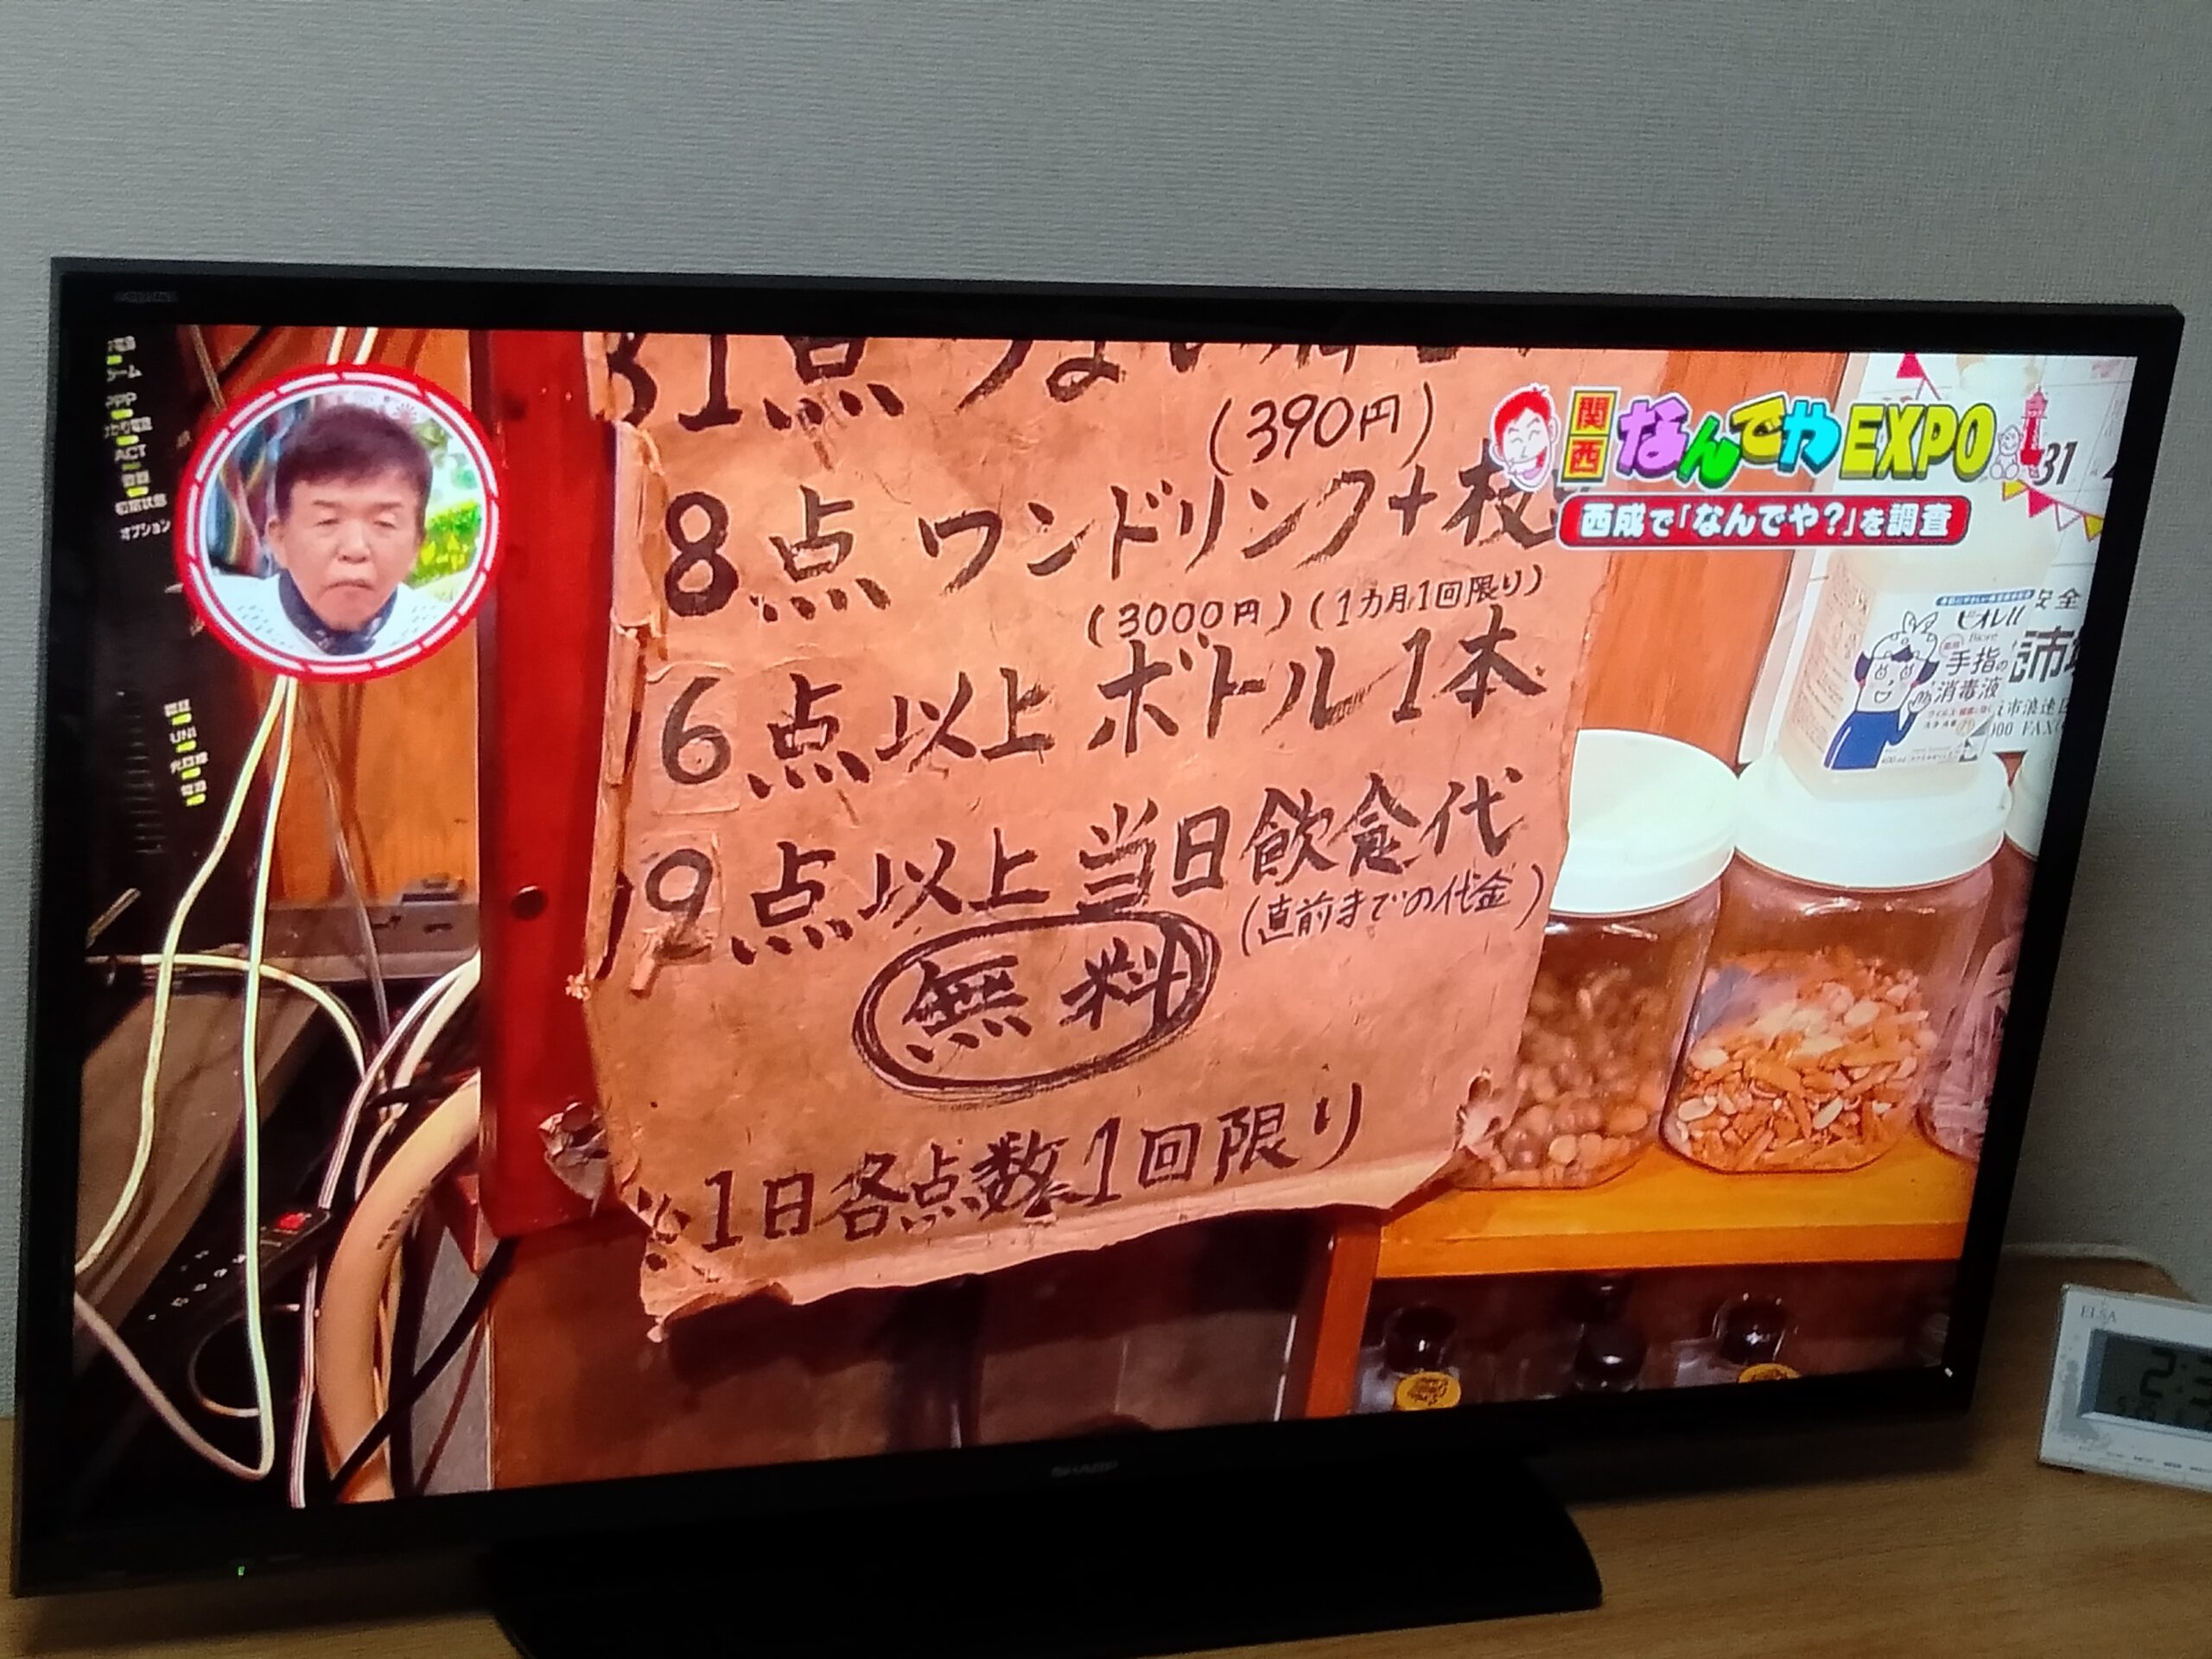 31点
(390円)
8点 ワンドリンク+枝
(3000円)(1カ月1回限り)
6点以上 ボトル1本
9点以上 当日飲食代
(直前までの代金)
無料
※1日各点数1回限り
関西 なんでや EXPO
西成で「なんでや?」を調査
31
PPP
ACT
オプション
UNI
ビオレu
Biore
手指の
消毒液
安全
市浪速区
000 FAX
SHARP
ELSA